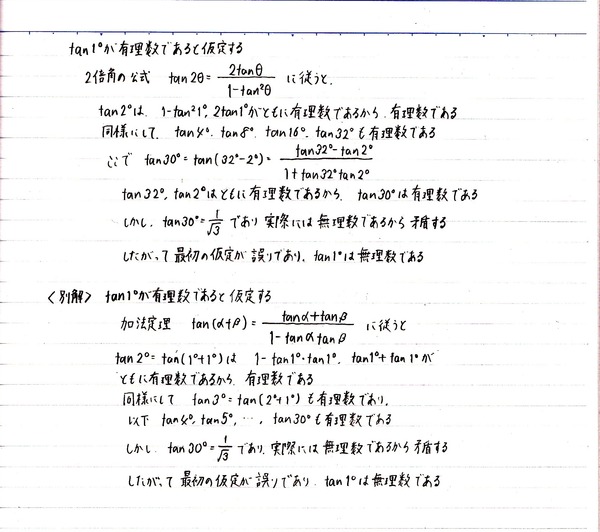 tan1°が有理数であると仮定する
2倍角の公式 tan2θ= 2tanθ/1-tan²θ に従うと、
tan2°は、1-tan²1°, 2tan1°がともに有理数であるから、有理数である
同様にして、tan4°, tan8°, tan16°, tan32°も有理数である
ここで tan30°=tan(32°-2°)= tan32°-tan2°/1+tan32°tan2°
tan32°, tan2°はともに有理数であるから、tan30°は有理数である
しかし、tan30°=1/√3 であり実際には無理数であるから矛盾する
したがって最初の仮定が誤りであり、tan1°は無理数である
〈別解〉 tan1°が有理数であると仮定する
加法定理 tan(α+β)= tanα+tanβ/1-tanαtanβ に従うと
tan2°=tan(1°+1°)は 1-tan1°・tan1°, tan1°+tan1°が
ともに有理数であるから、有理数である
同様にして tan3°=tan(2°+1°)も有理数であり、
以下 tan4°, tan5°, …, tan30°も有理数である
しかし、tan30°=1/√3 であり、実際には無理数であるから矛盾する
したがって最初の仮定が誤りであり、tan1°は無理数である